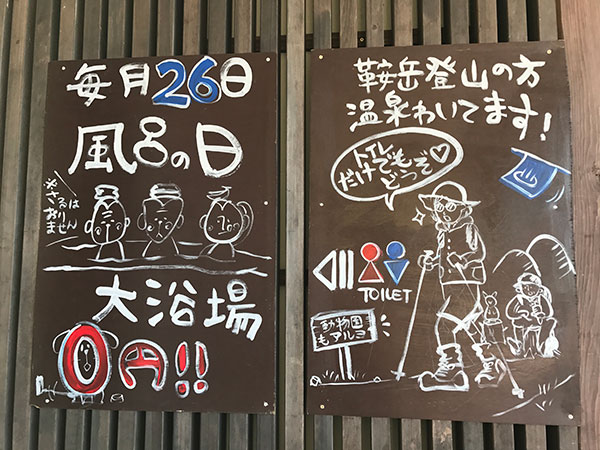 毎月26日
風呂の日
※さるは
おりません
大浴場
0円!!
鞍岳登山の方
温泉わいてます!
トイレ
だけでも
どうぞ♡
TOILET
動物園
もアルヨ